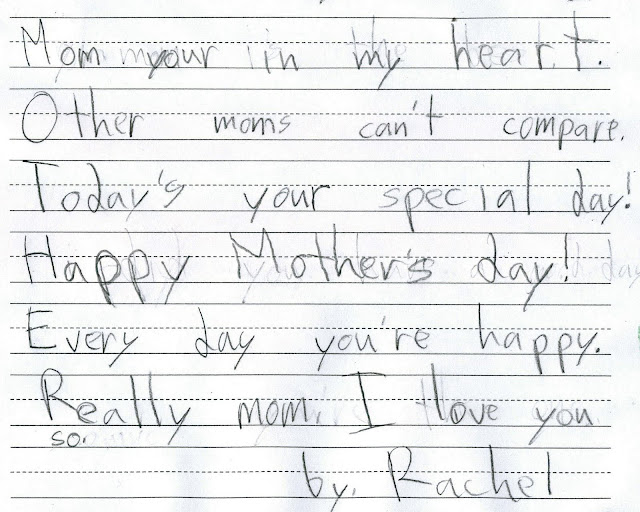 Mom your in my heart.
Other moms can't compare.
Today's your special day!
Happy Mother's day!
Every day you're happy.
Really mom, I love you
so.
by, Rachel